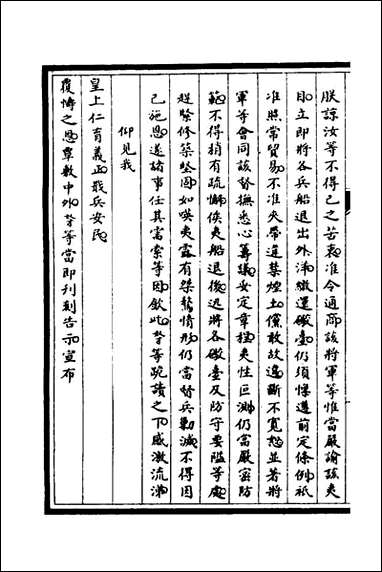 朕諒汝等不得已之苦衷准令通商該將軍等惟當嚴諭該夷
目立即將各兵船退出外洋繳還礮臺仍須懍遵前定條例衹
准照常貿易不准夾帶違禁煙土儻敢故違斷不寬恕並著將
軍等會同該督撫悉心籌議妥定章程夷性叵測仍當嚴密防
範不得稍有疏懈俟夷船退後迅將各礮臺及防守要隘等處
趕緊修築堅固如𠸄夷露有桀驁情形仍當督兵剿滅不得因
已施恩遂諸事任其需索等因欽此等等跪讀之下感激流涕
仰見我
皇上仁育義正戢兵安民
覆幬之恩覃敷中外等當即刊刻告示宣布